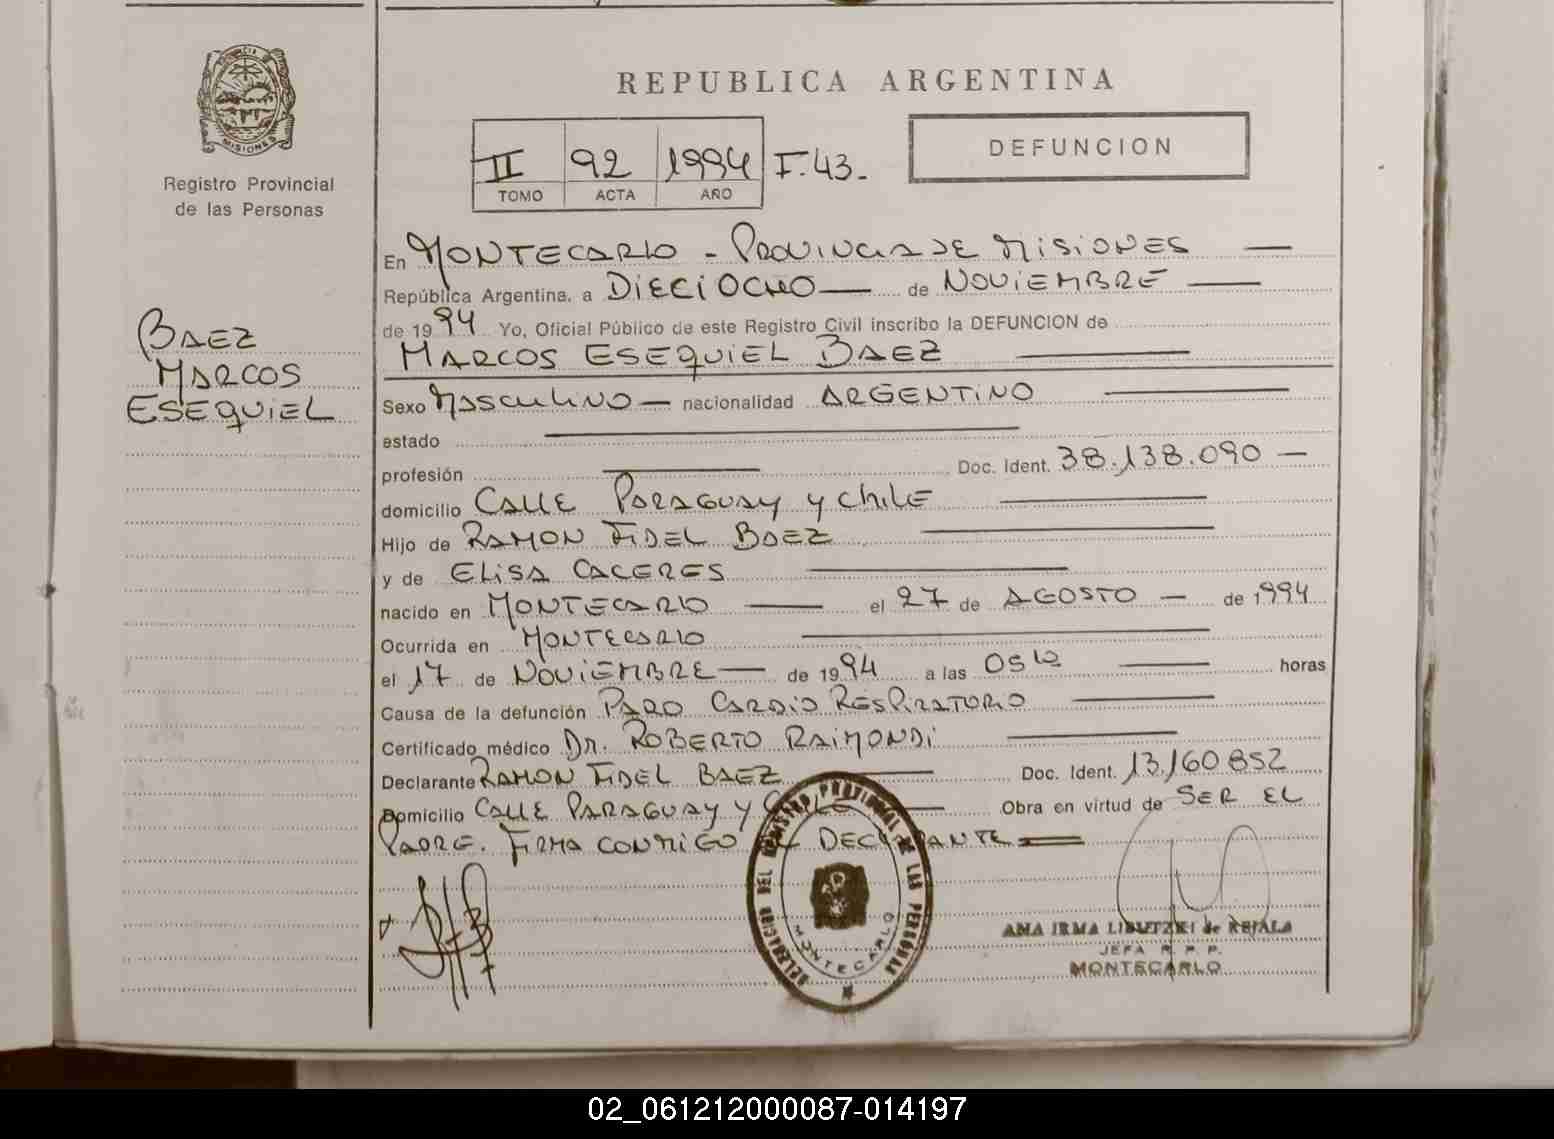 PROVINCIA
MISIONES
Registro Provincial
de las Personas
BAEZ
MARCOS
ESEQUIEL
REPUBLICA ARGENTINA
II 92 1994 F. 43.
TOMO ACTA AÑO
DEFUNCION
En MONTECARLO - PROVINCIA DE MISIONES
República Argentina, a DIECIOCHO de NOVIEMBRE
de 1994 Yo, Oficial Público de este Registro Civil inscribo la DEFUNCION de
MARCOS ESEQUIEL BAEZ
Sexo MASCULINO nacionalidad ARGENTINO
estado
profesión Doc. Ident. 38.138.090
domicilio CALLE PARAGUAY y CHILE
Hijo de RAMON FIDEL BAEZ
y de ELISA CACERES
nacido en MONTECARLO el 27 de AGOSTO de 1994
Ocurrida en MONTECARLO
el 17 de NOVIEMBRE de 1994 a las 05 horas
Causa de la defunción PARO CARDIO RESPIRATORIO
Certificado médico Dr. ROBERTO RAIMONDI
Declarante RAMON FIDEL BAEZ Doc. Ident. 13.160852
Domicilio CALLE PARAGUAY y Obra en virtud de SER EL
PADRE. FIRMA CONMIGO EL DECLARANTE
DELEGACION DEL REGISTRO PROVINCIAL DE LAS PERSONAS
MONTECARLO
ANA IRMA de
JEFA R. P. P.
MONTECARLO
02_061212000087-014197